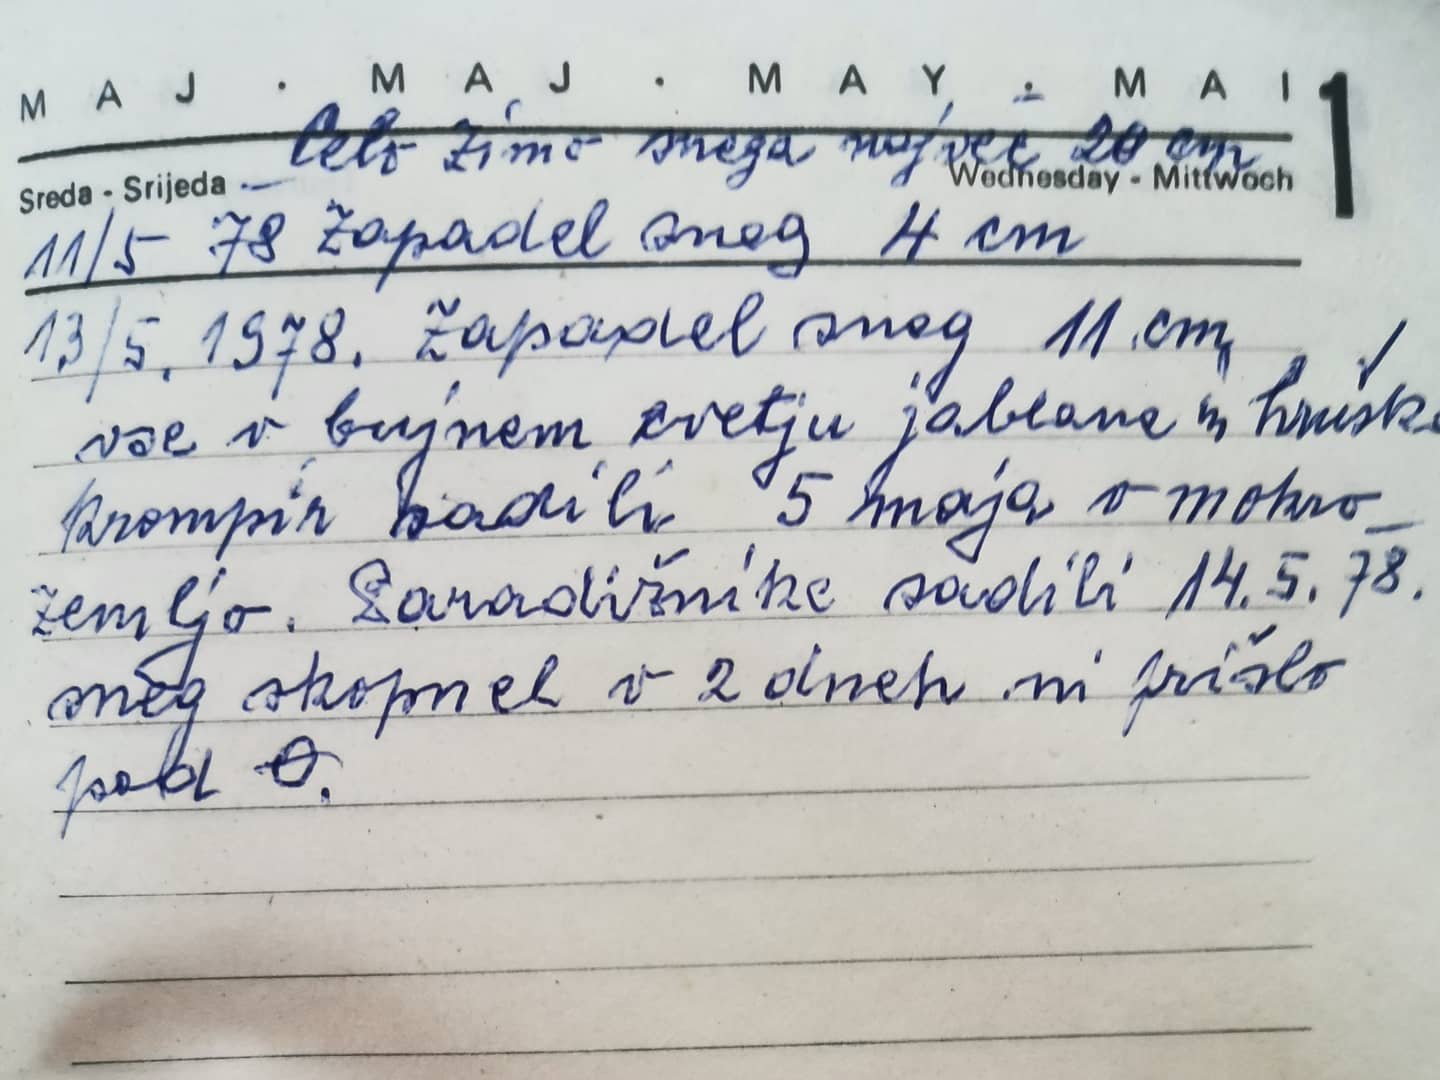 MAJ · MAJ · MAY · MAI 1
Celo zimo snega največ 20 cm
Sreda - Srijeda Wednesday - Mittwoch
11/5 78 Zapadel sneg 4 cm
13/5. 1978. Zapadel sneg 11 cm
vse v bujnem cvetju jablane in hruške
krompir sadili 5 maja v mokro
zemljo. Paradižnike sadili 14.5.78.
sneg skopnel v 2 dneh ni prišlo
pod 0.